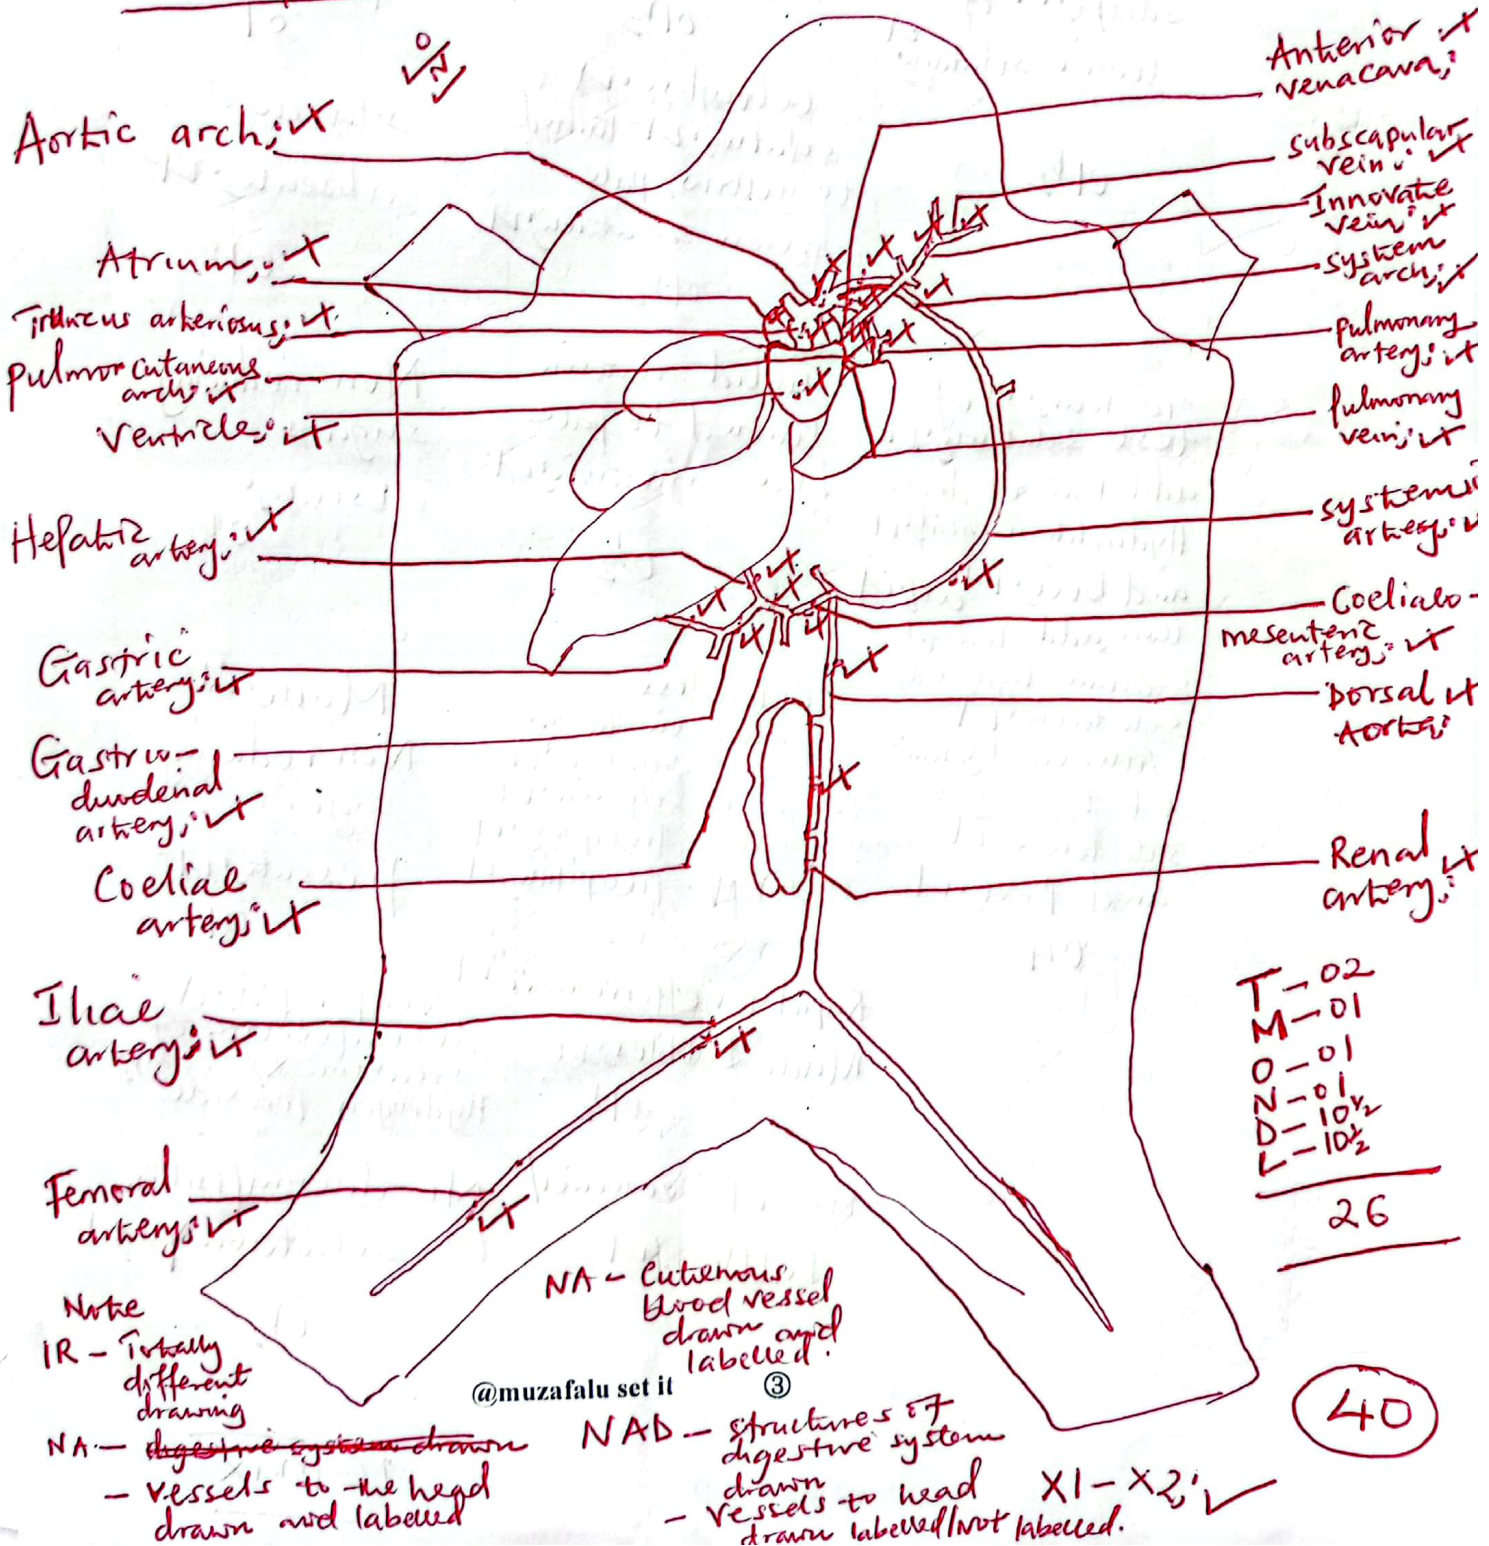 O/N
Aortic arch;
Atrium;
Truncus arteriosus;
Pulmor cutaneous
arch;
Ventricle;
Hepatic
artery;
Gastric
artery;
Gastro-
duodenal
artery;
Coeliac
artery;
Iliac
artery;
Femoral
artery;
Anterior
venacava;
subscapular
vein;
Innovate
vein;
system
arch;
pulmonary
artery;
pulmonary
vein;
systemic
artery;
Coeliaco-
mesenteric
artery;
Dorsal
Aorta;
Renal
artery;
T - 02
M - 01
O - 01
N - 01
D - 10½
L - 10½
26
40
Note
IR - Totally
different
drawing
NA - digestive system drawn
- Vessels to the head
drawn and labelled
NA - Cutenous
blood vessel
drawn and
labelled.
@muzafalu set it ③
NAD - structures of
digestive system
drawn
- Vessels to head
drawn labelled/not labelled.
X1 - X2;